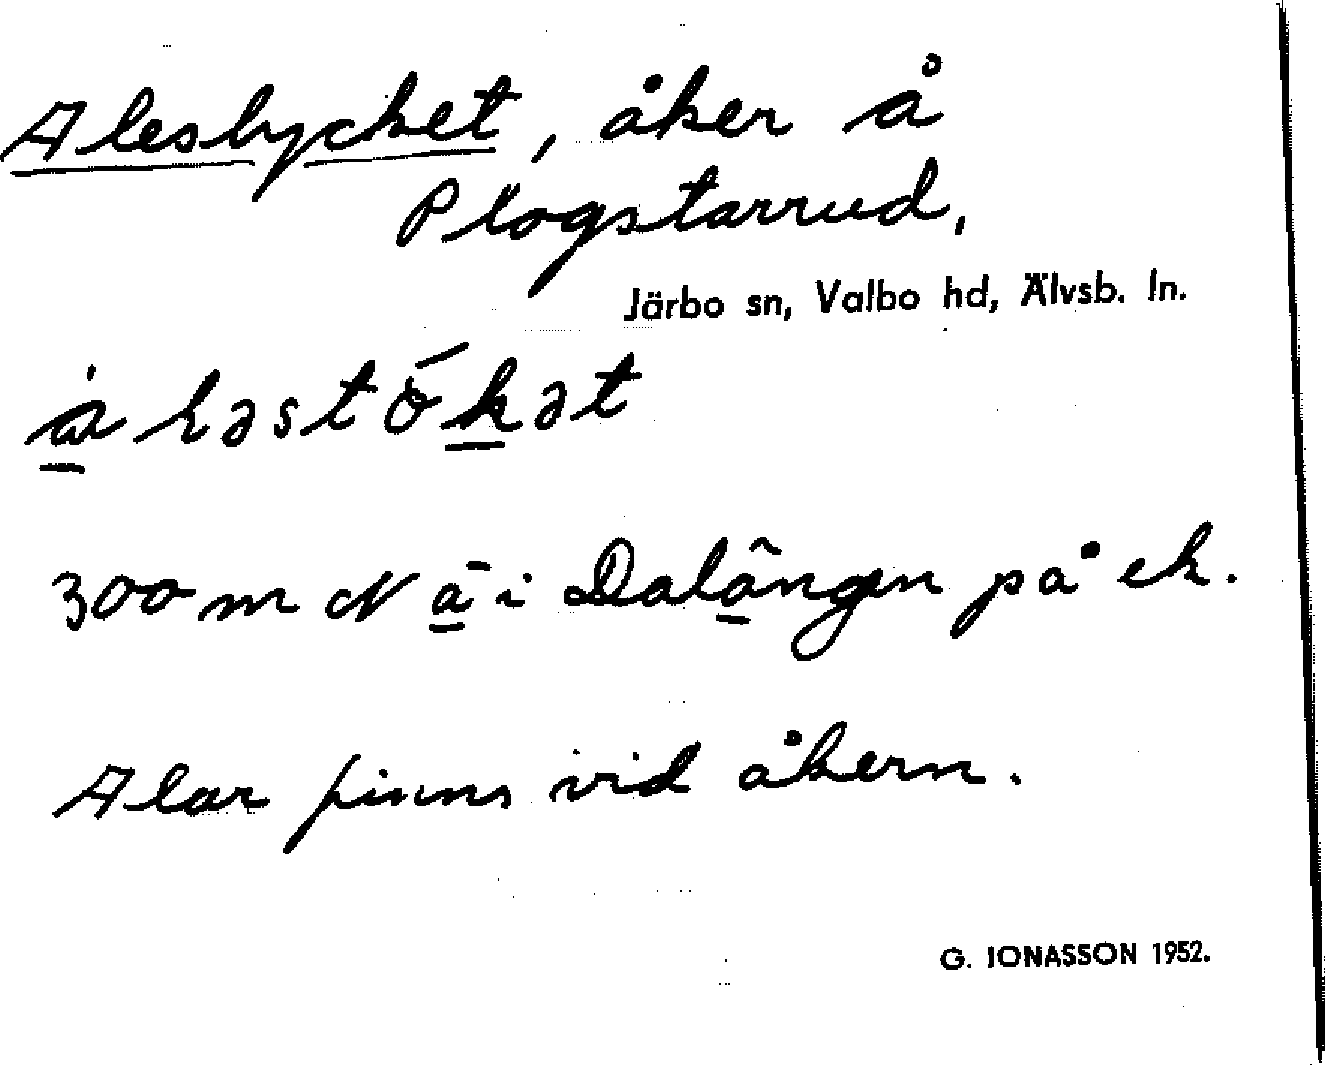 Alesbycket, åker å
Plogstarrud,
Järbo sn, Valbo hd, Älvsb. ln.
300 m N ä i Dalängen på ek.
Alar finns vid åkern.
G. IONASSON 1952.